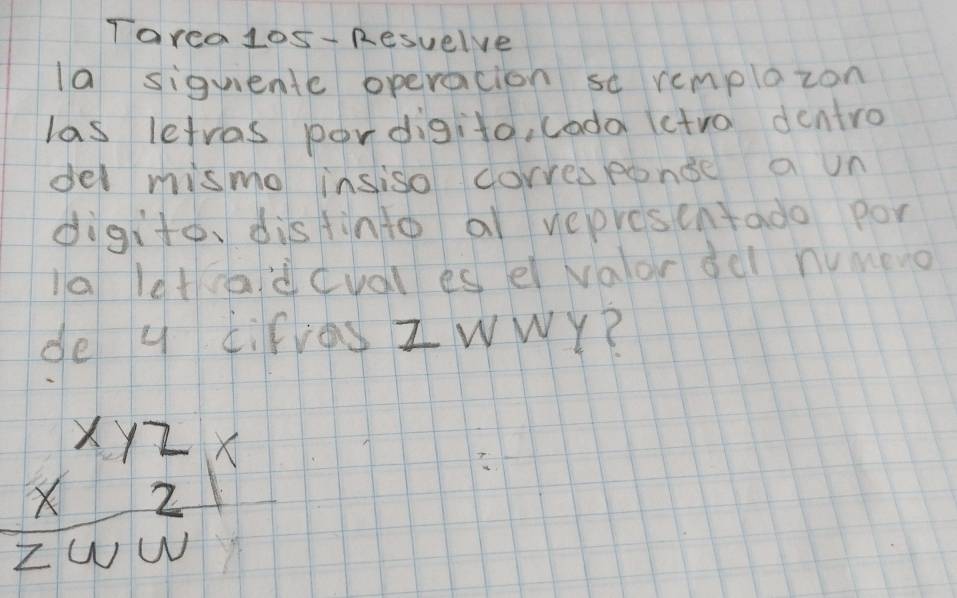 Tarea 105-Resuelve
la siguiente operacion se remplazan
las letras por digito, cada letra dentro
del mismo insiso corresponde a un
digito, distinto al representado por
la letra d cual es el valor del numero
de 4 cifras Z W W Y?
X Y Z X
X 2
Z W W Y